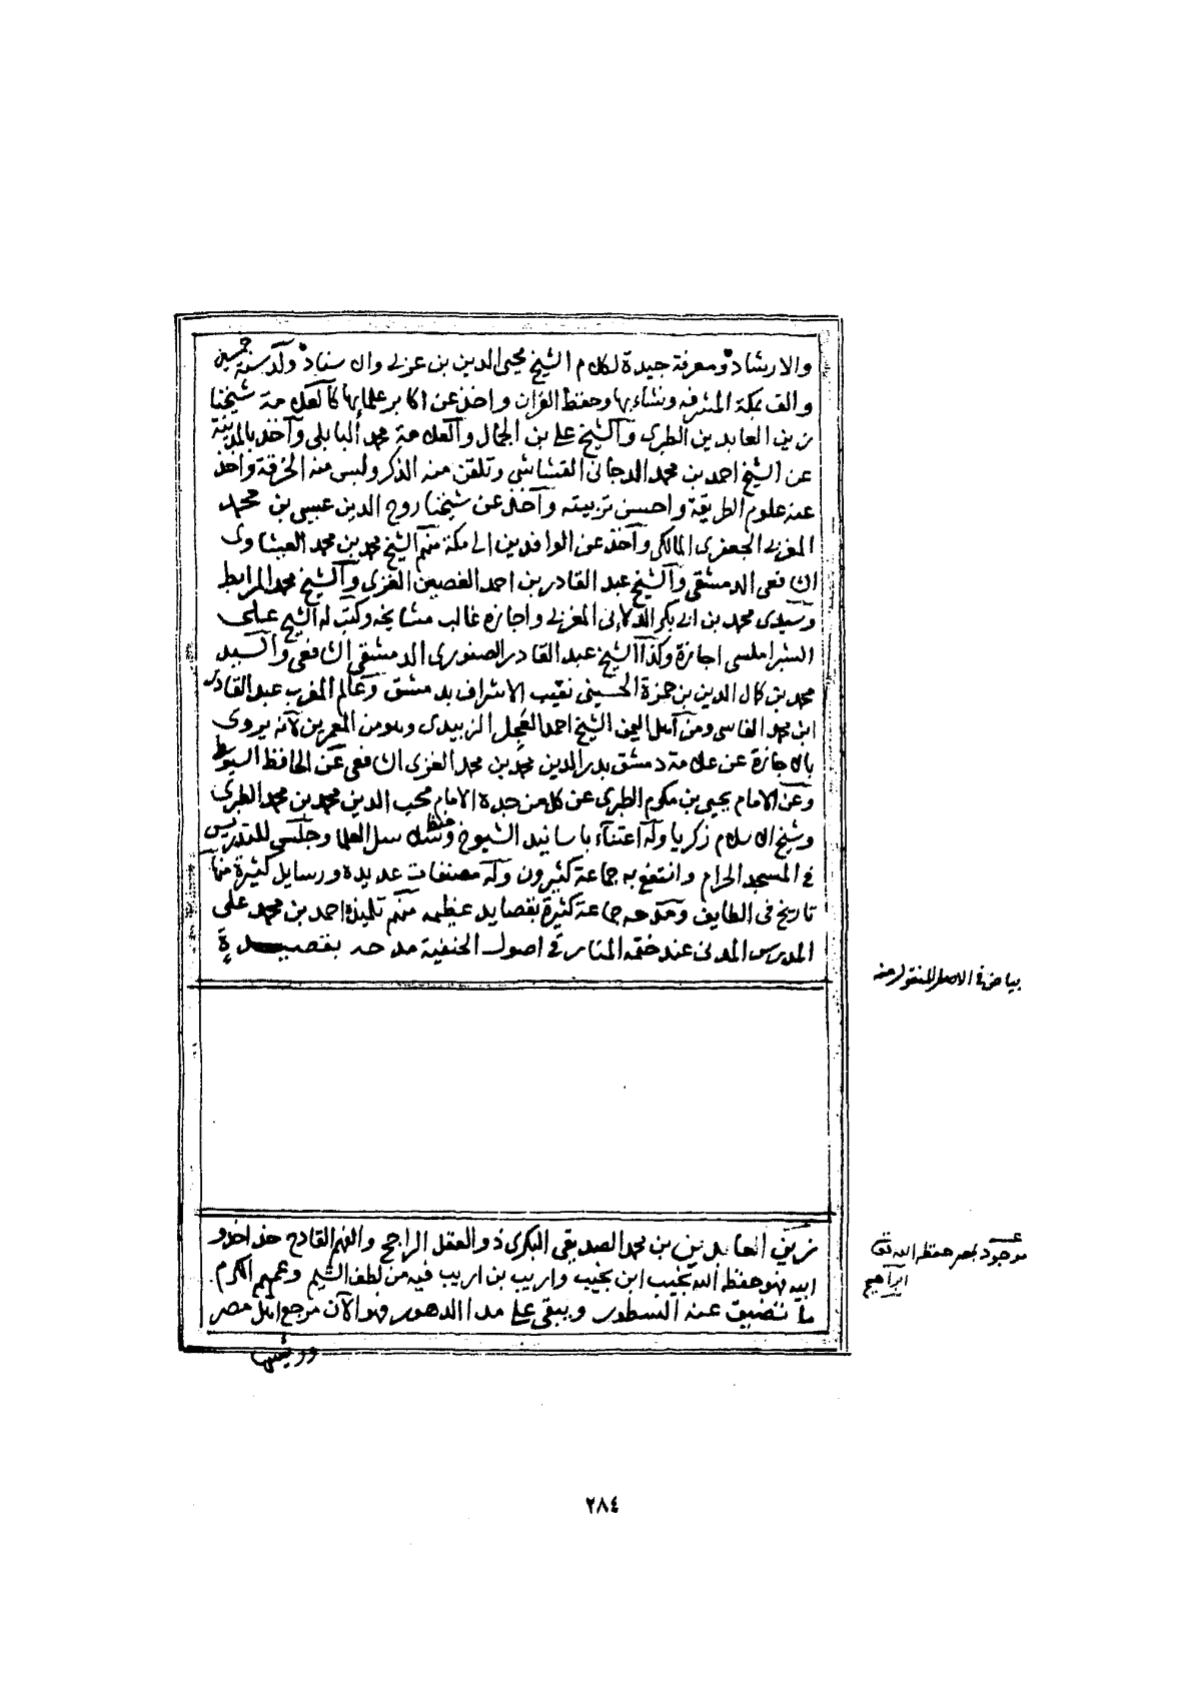 والارشاد ومعرفة جيدة لكلام الشيخ محيى الدين بن عربى والاستاذ ولد سنة خمسين
والف بمكة المشرفه ونشاء بها وحفظ القران واخذ عن اكابر علمايها كالعلامة شيخنا
زين العابدين الطبرى والشيخ على بن الجمال والعلامة محمد البابلى واخذ بالمدينة
عن الشيخ احمد بن محمد الدجانى القشاشى وتلقن منه الذكر ولبس منه الخرقة واخذ
عنه علوم الطريقة واحسن تربيته واخذ عن شيخنا روح الدين عيسى بن محمد
المغربى الجعفرى المالكى واخذ عن الوافدين الى مكة منهم الشيخ محمد بن محمد العيشاوى
الشافعى الدمشقى والشيخ عبد القادر بن احمد الغصين الغزى والشيخ محمد المرابط
وسيدى محمد بن ابى بكر الدلائى المغربى واجازه غالب مشايخه وكتب له الشيخ على
الشبراملسى اجازة وكذا الشيخ عبد القادر الصفورى الدمشقى الشافعى والسيد
محمد بن كمال الدين بن حمزة الحسينى نقيب الاشراف بدمشق وعالم المغرب عبد القادر
ابن محمد الفاسى ومن اهل اليمن الشيخ احمد العجل الزبيدى وهو من المعمرين لانه يروى
بالاجازة عن علامة دمشق بدر الدين محمد بن محمد الغزى الشافعى عن الحافظ السيوطى
وعن الامام يحيى بن مكرم الطبرى عن كل من جده الامام محب الدين محمد بن محمد الطبرى
وشيخ الاسلام زكريا وله اعتناء باسانيد الشيوخ وحفظ سلاسل العلما وجلس للتدريس
فى المسجد الحرام وانتفع به جماعة كثيرون وله مصنفات عديدة ورسايل كثيرة منها
تاريخ فى الطايف ومدحه جماعة كثيرة بقصايد عظيمه منهم تلميذه احمد بن محمد على
المدرس المدنى عند ختمه المنار فى اصول الحنفية مدحه بقصيدة
بياض فى الاصل المنقول منه
زين العابدين بن محمد الصديقى البكرى ذو العقل الراجح والفهم القادح هذا خذو
ابيه فهو حفظه الله نجيب ابن نجيب واريب بن اريب فيه من لطف الشيم وعميم الكرم
ما تضيق عنه السطور ويبقى على مدا الدهور فهو الآن مرجع اهل مصر
موجود بمصر حفظه الله تعالى
ابراهيم
ورئيسها
٢٨٤